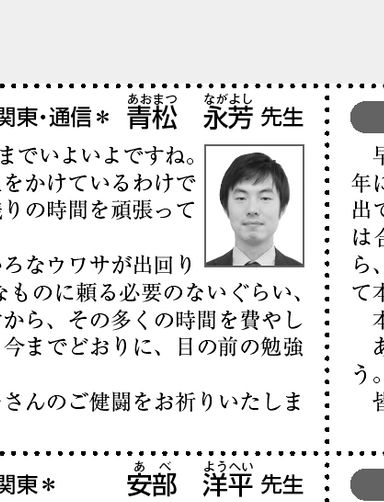 関東・通信＊ 青松 永芳 先生
あおまつ ながよし
までいよいよですね。
をかけているわけで
りの時間を頑張って
ろなウワサが出回り
なものに頼る必要のないぐらい、
から、その多くの時間を費やし
今までどおりに、目の前の勉強
さんのご健闘をお祈りいたしま
関東＊ 安部 洋平 先生
あべ ようへい
早
年に
出て
は合
ら、
て本
本
あ
う。
皆